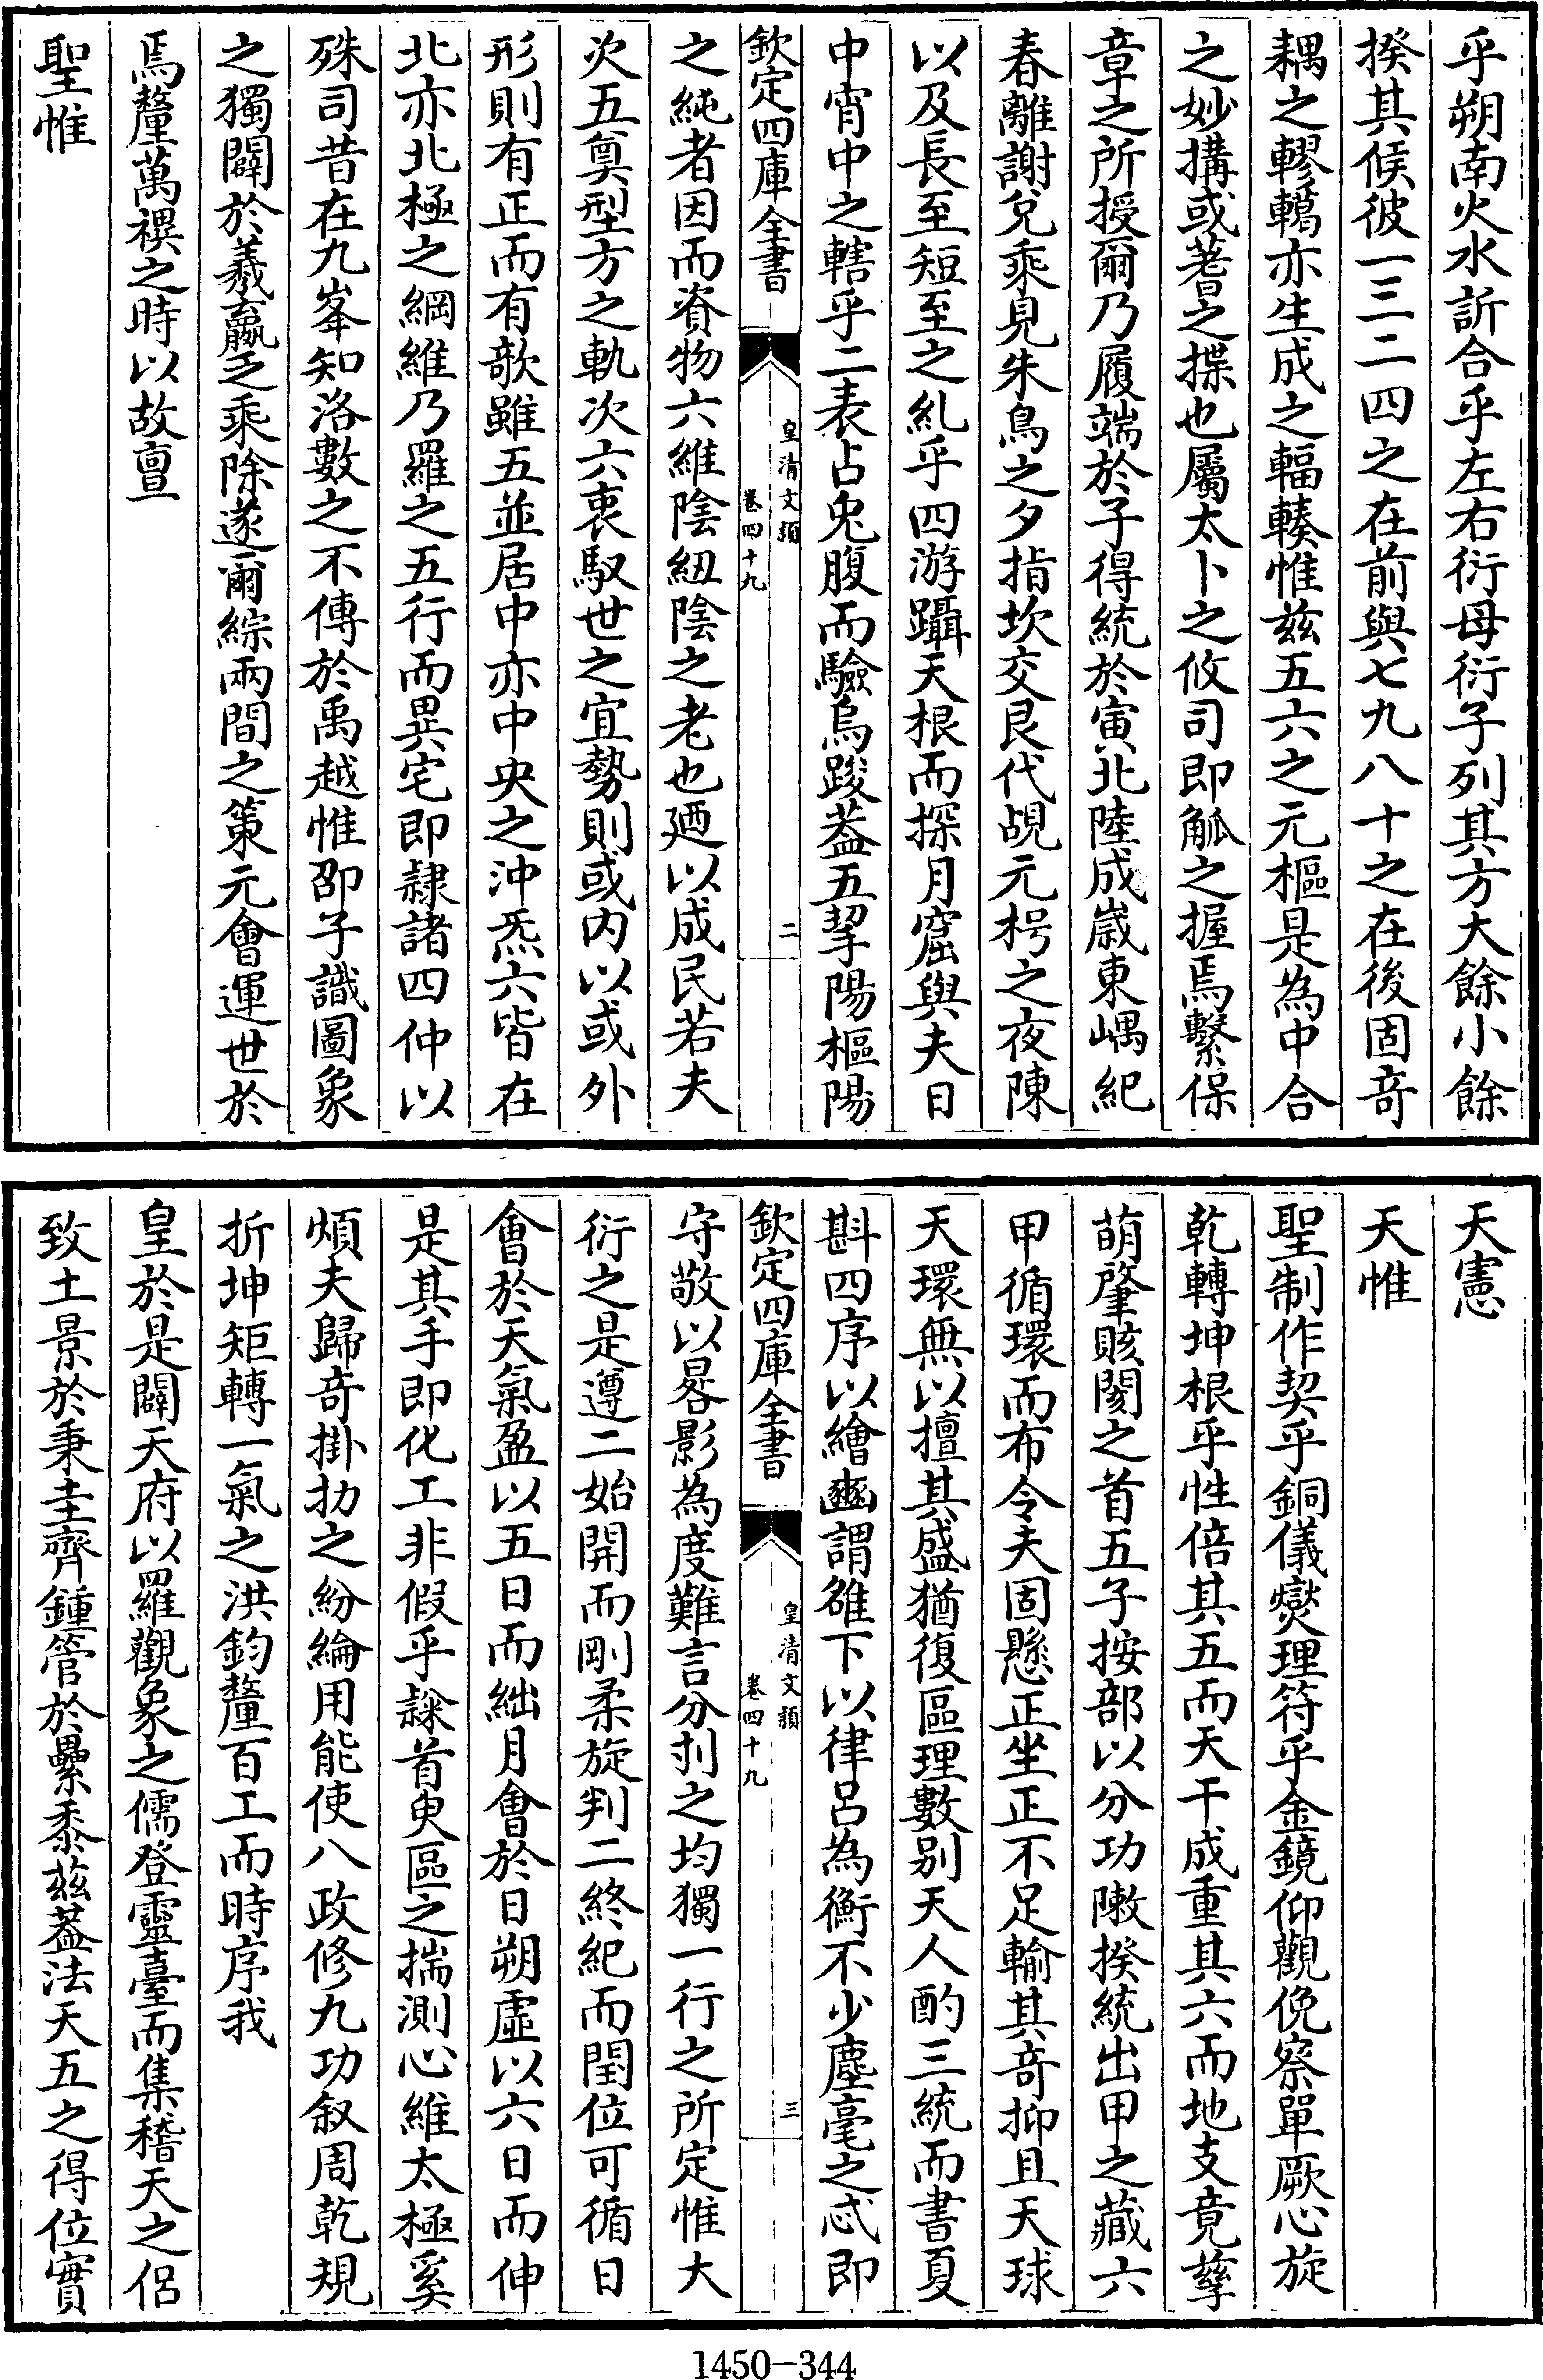 乎朔南火水訢合乎左右衍母衍子列其方大餘小餘
揆其候彼一三二四之在前與七九八十之在後固竒
耦之轇轕亦生成之輻輳惟兹五六之元樞是為中合
之妙搆或蓍之揲也屬太卜之攸司即觚之握焉繫保
章之所授爾乃履端於子得統於寅北陸成嵗東嵎紀
春離謝兌乘見朱鳥之夕指坎交艮代覘元枵之夜陳
以及長至短至之糺乎四游躡天根而探月窟與夫日
中宵中之轄乎二表占兔腹而驗烏踆葢五挈陽樞陽
欽定四庫全書
皇清文頴
卷四十九
二
之純者因而資物六維陰紐陰之老也廼以成民若夫
次五奠型方之軌次六衷馭世之宜勢則或内以或外
形則有正而有欹雖五並居中亦中央之沖炁六皆在
北亦北極之綱維乃羅之五行而異宅即隷諸四仲以
殊司昔在九峯知洛數之不傳於禹越惟邵子識圖象
之獨闢於羲嬴乏乘除遂爾綜兩間之策元會運世於
焉釐萬禩之時以故亶
聖惟
天憲
天惟
聖制作契乎銅儀爕理符乎金鏡仰觀俛察單厥心旋
乾轉坤根乎性倍其五而天干成重其六而地支竟孳
萌肇賅閡之首五子按部以分功陬揆統出甲之藏六
甲循環而布令夫固懸正坐正不足輸其竒抑且天球
天環無以擅其盛猶復區理數别天人酌三統而書夏
斟四序以繪豳謂雒下以律吕為衡不少塵毫之忒即
欽定四庫全書
皇清文頴
卷四十九
三
守敬以晷影為度難言分刌之均獨一行之所定惟大
衍之是遵二始開而剛柔旋判二終紀而閏位可循日
會於天氣盈以五日而絀月會於日朔虛以六日而伸
是其手即化工非假乎隷首臾區之揣測心維太極奚
煩夫歸竒掛扐之紛綸用能使八政修九功叙周乾規
折坤矩轉一氣之洪鈞釐百工而時序我
皇於是闢天府以羅觀象之儒登靈臺而集稽天之侣
致土景於秉圭齊鍾管於纍黍兹葢法天五之得位實
1450-344